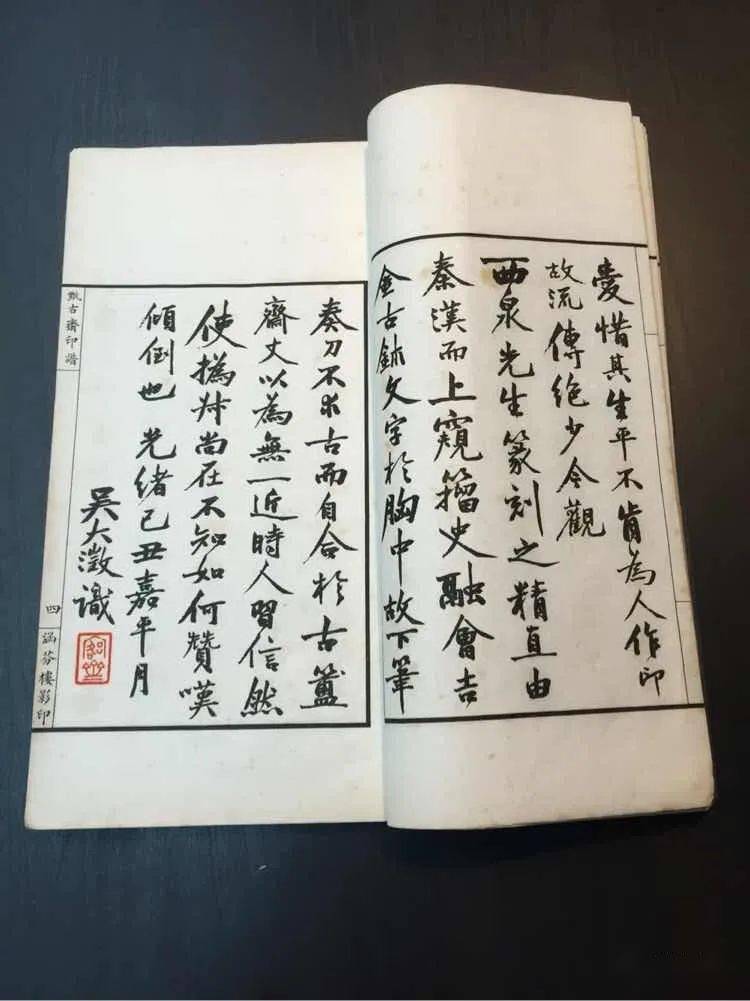 愛惜其生平不肯為人作印
故流傳絕少今觀
西泉先生篆刻之精直由
秦漢而上窺籀史融會吉
金古鉨文字於胸中故下筆
奏刀不求古而自合於古簠
齋丈以為無一近時人習信然
使撝叔尚在不知如何贊嘆
傾倒也 光緒己丑嘉平月
吳大澂識
甄古齋印譜
四
涵芬樓影印